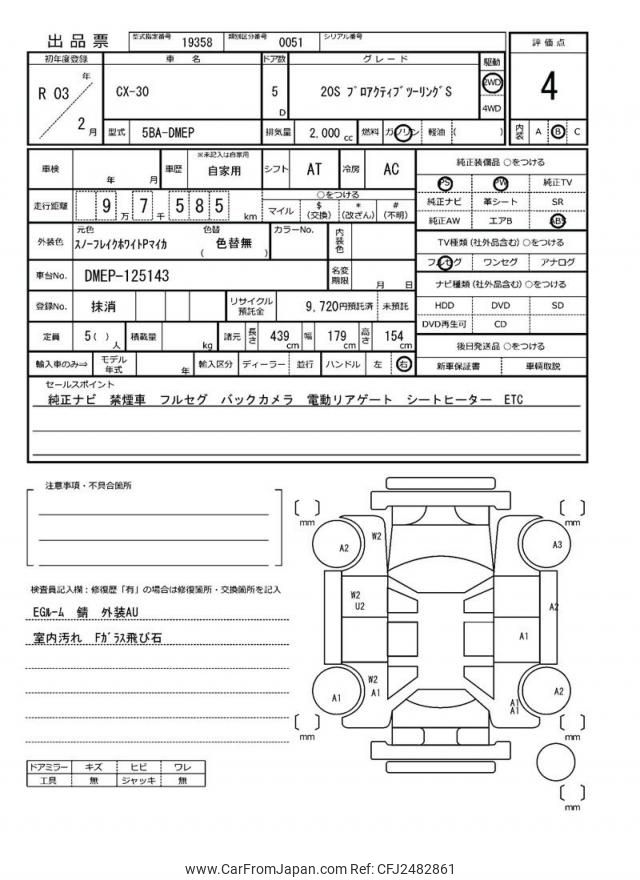 出品票
型式指定番号 19358 類別区分番号 0051 シリアル番号
初年度登録 車名 ドア数 グレード 駆動 評価点
R 03 年 2 月
CX-30
5 D
20S プロアクティブツーリングS
2WD
4WD
4
型式 5BA-DMEP 排気量 2,000 cc 燃料 ガソリン 軽油 ( )
内装 A B C
車検 年 月 車歴 ※未記入は自家用 自家用 シフト AT 冷房 AC
純正装備品 ○をつける
PS PW 純正TV
純正ナビ 革シート SR
純正AW エアB ABS
走行距離 9 万 7 千 5 8 5 km
○をつける
マイル $ (交換) * (改ざん) # (不明)
外装色 元色 スノーフレイクホワイトPマイカ 色替 ( 色替無 ) カラーNo. 内装色
TV種類 (社外品含む) ○をつける
フルセグ ワンセグ アナログ
車台No. DMEP-125143 名変期限 月 日
ナビ種類 (社外品含む) ○をつける
HDD DVD SD
DVD再生可 CD
登録No. 抹消 リサイクル預託金 9,720円預託済 未預託
定員 5 ( ) 人 積載量 kg 諸元 長さ 439 cm 幅 179 cm 高さ 154 cm
後日発送品 ○をつける
新車保証書 車輌取説
輸入車のみ⇒ モデル年式 年 輸入区分 ディーラー 並行 ハンドル 左 右
セールスポイント
純正ナビ 禁煙車 フルセグ バックカメラ 電動リアゲート シートヒーター ETC
注意事項・不具合箇所
検査員記入欄：修復歴「有」の場合は修復箇所・交換箇所を記入
EGルーム 錆 外装AU
室内汚れ Fガラス飛び石
ドアミラー キズ ヒビ ワレ
工具 無 ジャッキ 無
mm mm
A2 W2 A3
W2
U2 A2
A1
W2
A1 A1 A1
A1 A2
mm mm
mm
www.CarFromJapan.com Ref: CFJ2482861